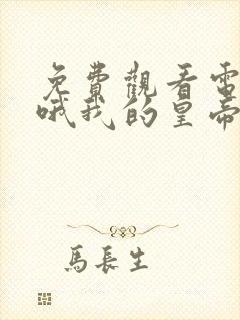 免費觀看電
哦我的皇帝
馬長生